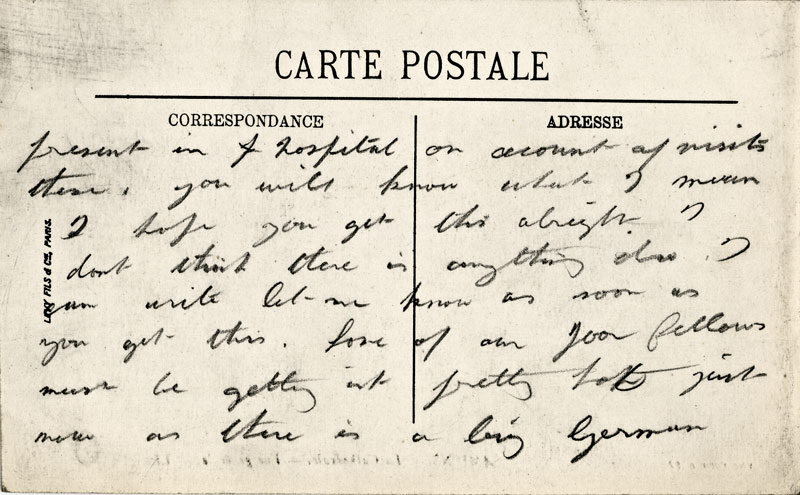 CARTE POSTALE
CORRESPONDANCE
ADRESSE
present in hospital on account of visits
there. you will know what I mean
I hope you get this alright I
dont think there is anything else. I
write let me know as soon as
you get this. Some of our poor fellows
must be getting it pretty hot just
now as there is a big German
LEVY FILS & Cie, PARIS.